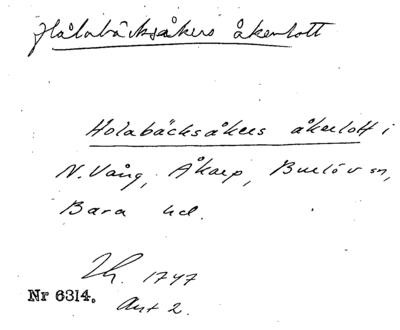 Hålabäcksåkers åkerlott
Holabäcksåkers åkerlott i
N. Vång, Åkarp, Burlöv sn,
Bara hd.
Lh. 1747
Nr 6314.
Akt 2.